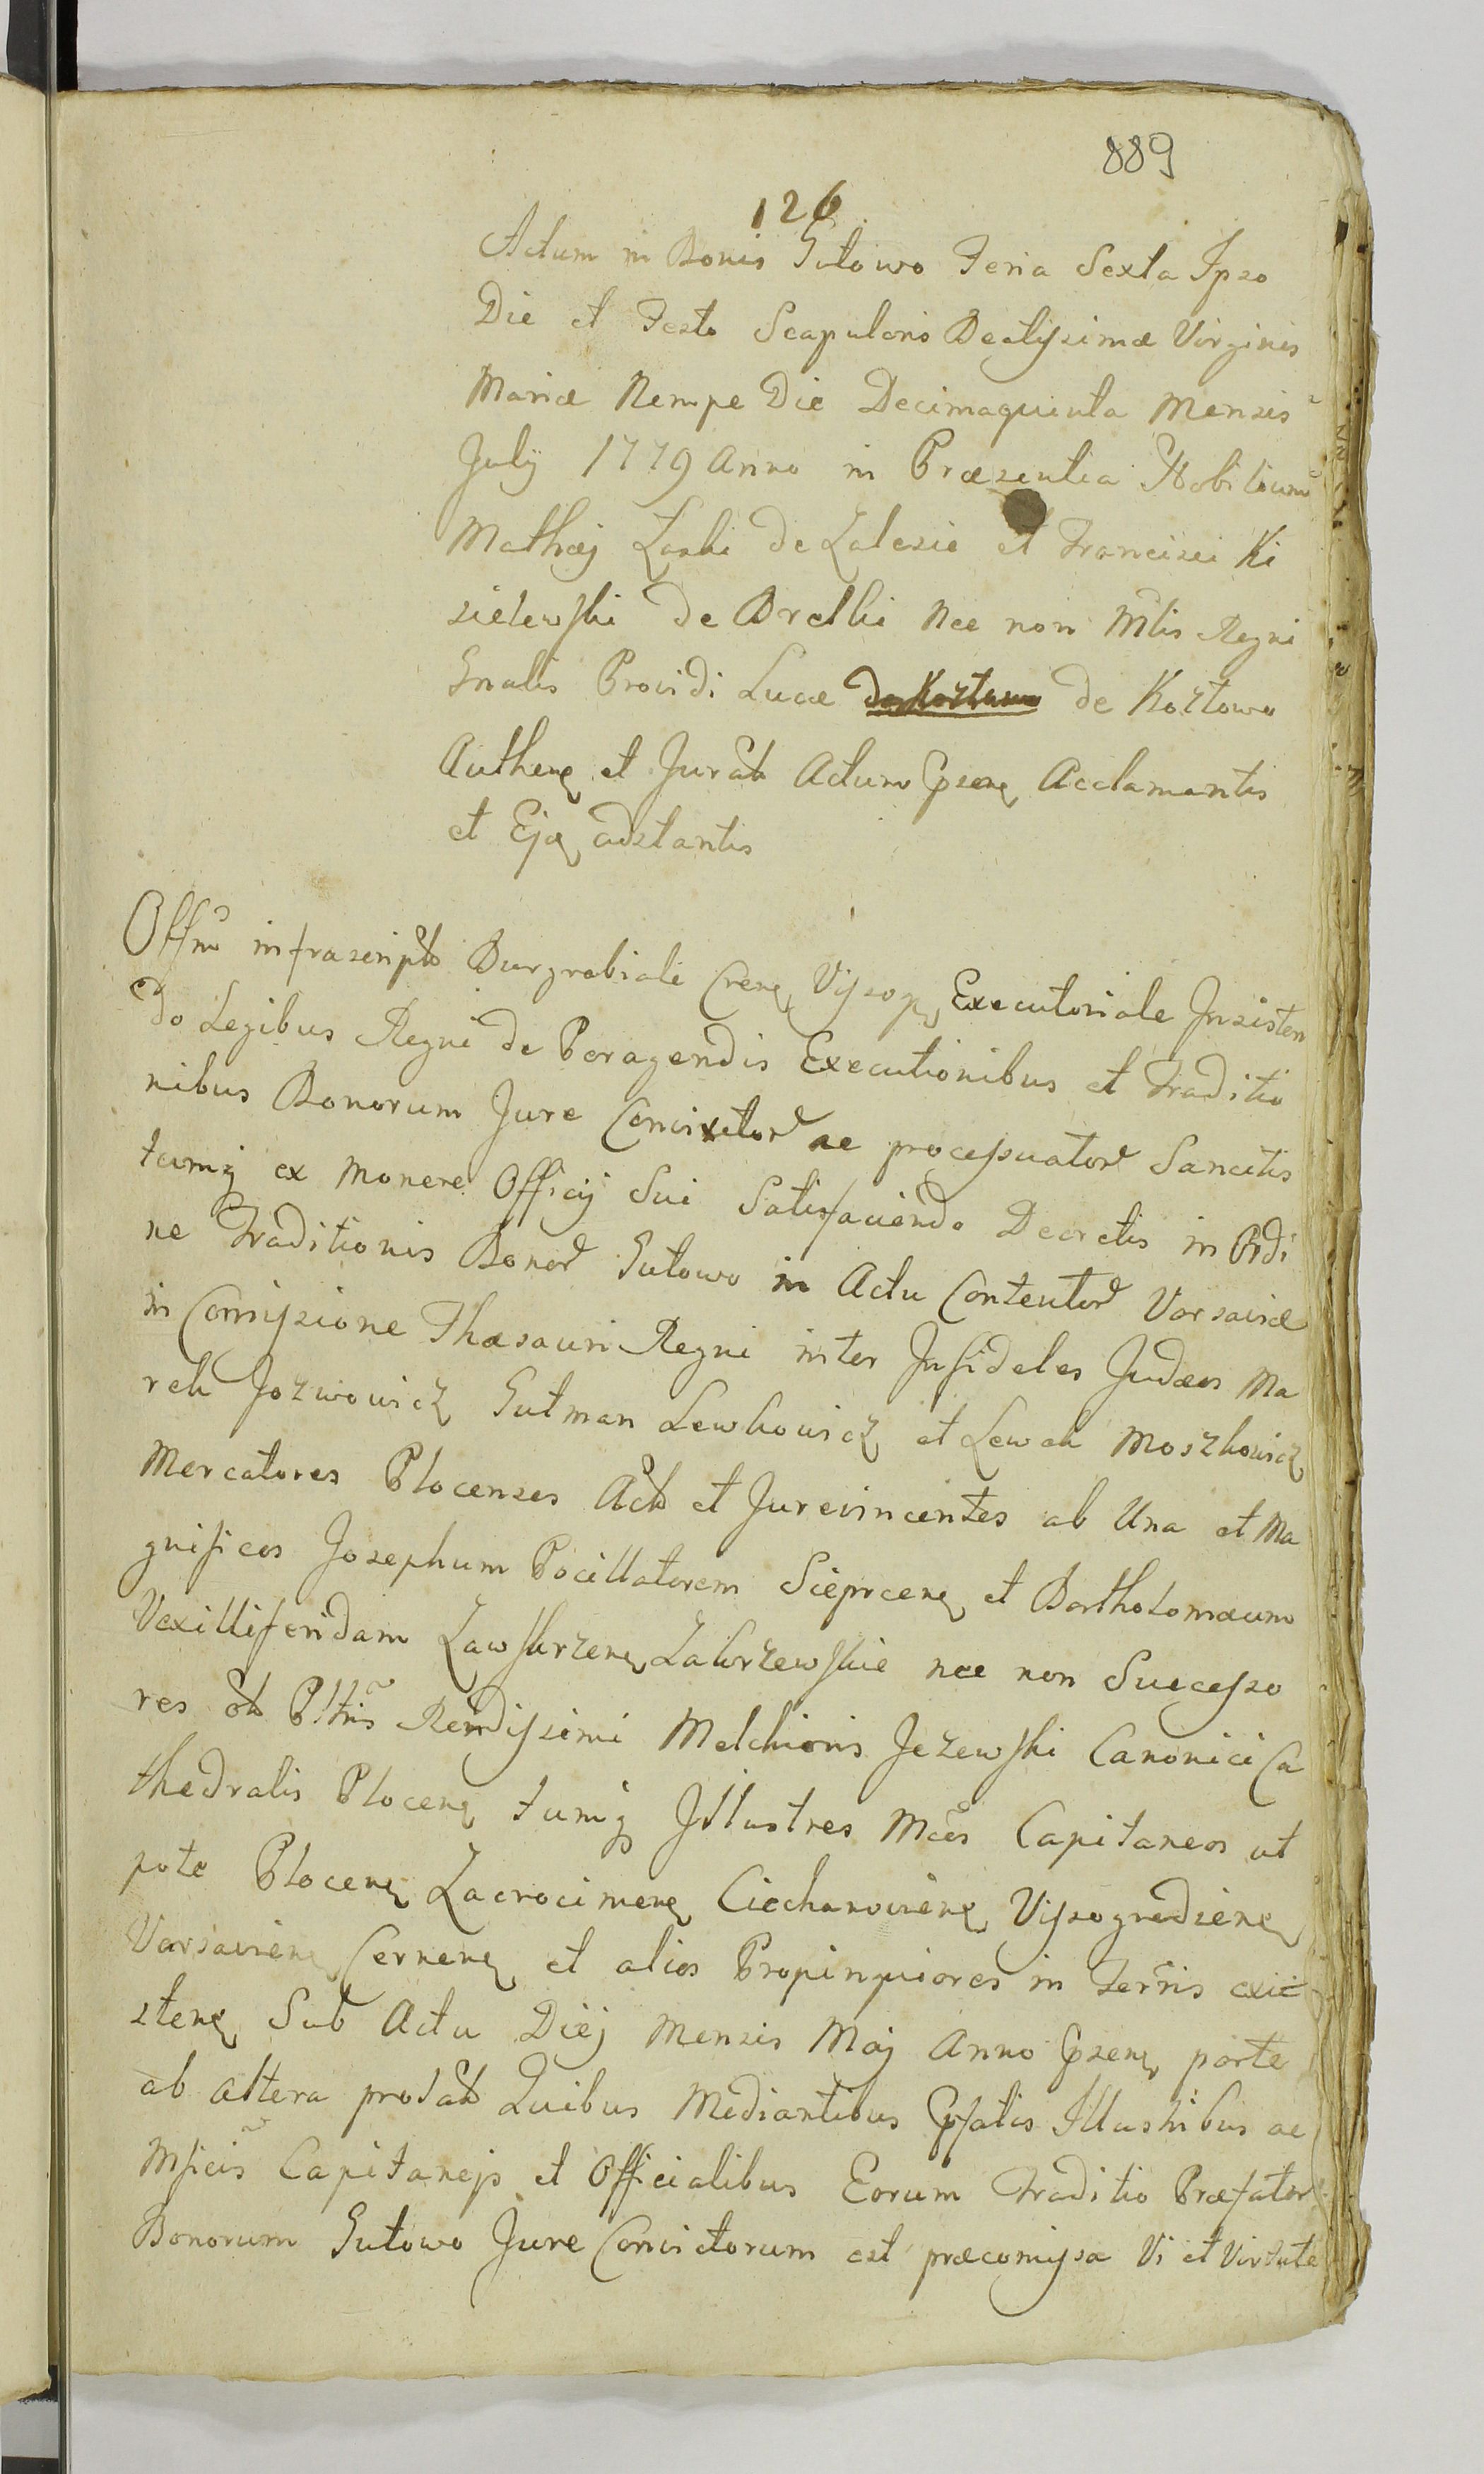 889
126
Actum in Bonis Gutowo Feria Sexta Ipso
Die et Festo Scapularis Beatissimæ Virginis
Mariæ Nempe Die Decimaquinta Mensis
July 1779 Anno in Præsentia Nobilium
Mathæj Zaski de Zalesie et Francisci Ki
sielewski de Brelki Nec non Mtlis Regni
Gnalis Providi Lucæ de Kozłowo de Kozłowo
Authenq et Jurati Actum Gpsenq Acclamantis
et Ejq adstantis
Offm infrascripto Burgrabiale Crenq Vissogq Executoriale Insisten
do Legibus Regni de Peragendis Executionibus et Traditio
nibus Bonorum Jure Convictor ac processuator Sancitis
tumq ex Monere Officij Sui Satisfaciendo Decretis in Ordi
ne Traditionis Bonor Gutowo in Actu Contentor Varsaviæ
in Comissione Thæsauri Regni inter Infideles Judæos Ma
rek Jozwowicz Gutman Lewkowicz et Lewek Moszkowicz
Mercatores Plocenses Acto et Jurevincentes ab Una et Ma
gnificos Josephum Pocillatorem Sieprcenq et Bartholomæum
Vexilliferidam Zawskrzenq Zakrzewskie nec non Successo
res ol Pltris Rendissimi Melchioris Jezewski Canonici Ca
thedralis Plocenq tumq Illustres Mcos Capitaneos ut
pote Plocenq Zacrocimenq Ciechanovienq Vissogrodzienq
Varsavienq Cernenq et alios Propinquiores in Terris exi
stenq Sub Actu Diej Mensis Maj Anno Gpsenq parte
ab altera prolato Quibus Mediantibus Gpfatis Illustribus ac
Mficis Capitanejs et Officialibus Eorum Traditio Præfator
Bonorum Gutowo Jure Convictorum est præcomissa Vi et Virtute